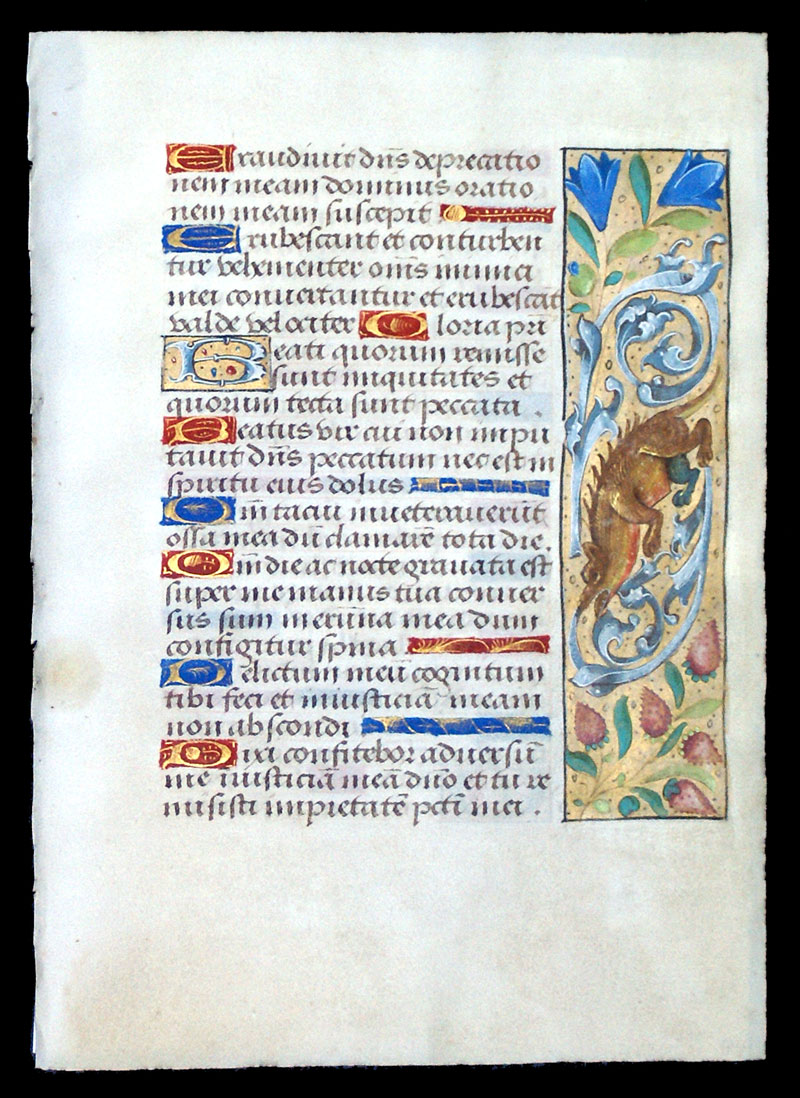 Exaudivit dn̄s deprecatio
nem meam dominus oratio
nem meam suscepit
Erubescant et conturben
tur vehementer om̄s inimici
mei convertantur et erubescāt
valde velociter Gloria pri
Beati quorum remisse
sunt iniquitates et
quorum tecta sunt peccata .
Beatus vir cui non impu
tavit dn̄s peccatum nec est in
spiritu eius dolus
Qm̄ tacui inveteraverūt
ossa mea dū clamarē tota die.
Qm̄ die ac nocte gravata est
super me manus tua conver
sus sum in erūna mea dum
configitur spina
Delictum meū cognitum
tibi feci et iniusticiā meam
non abscondi
Dixi confitebor adversū
me iniusticiā meā dn̄o et tu re
misisti impietatē pctī mei .